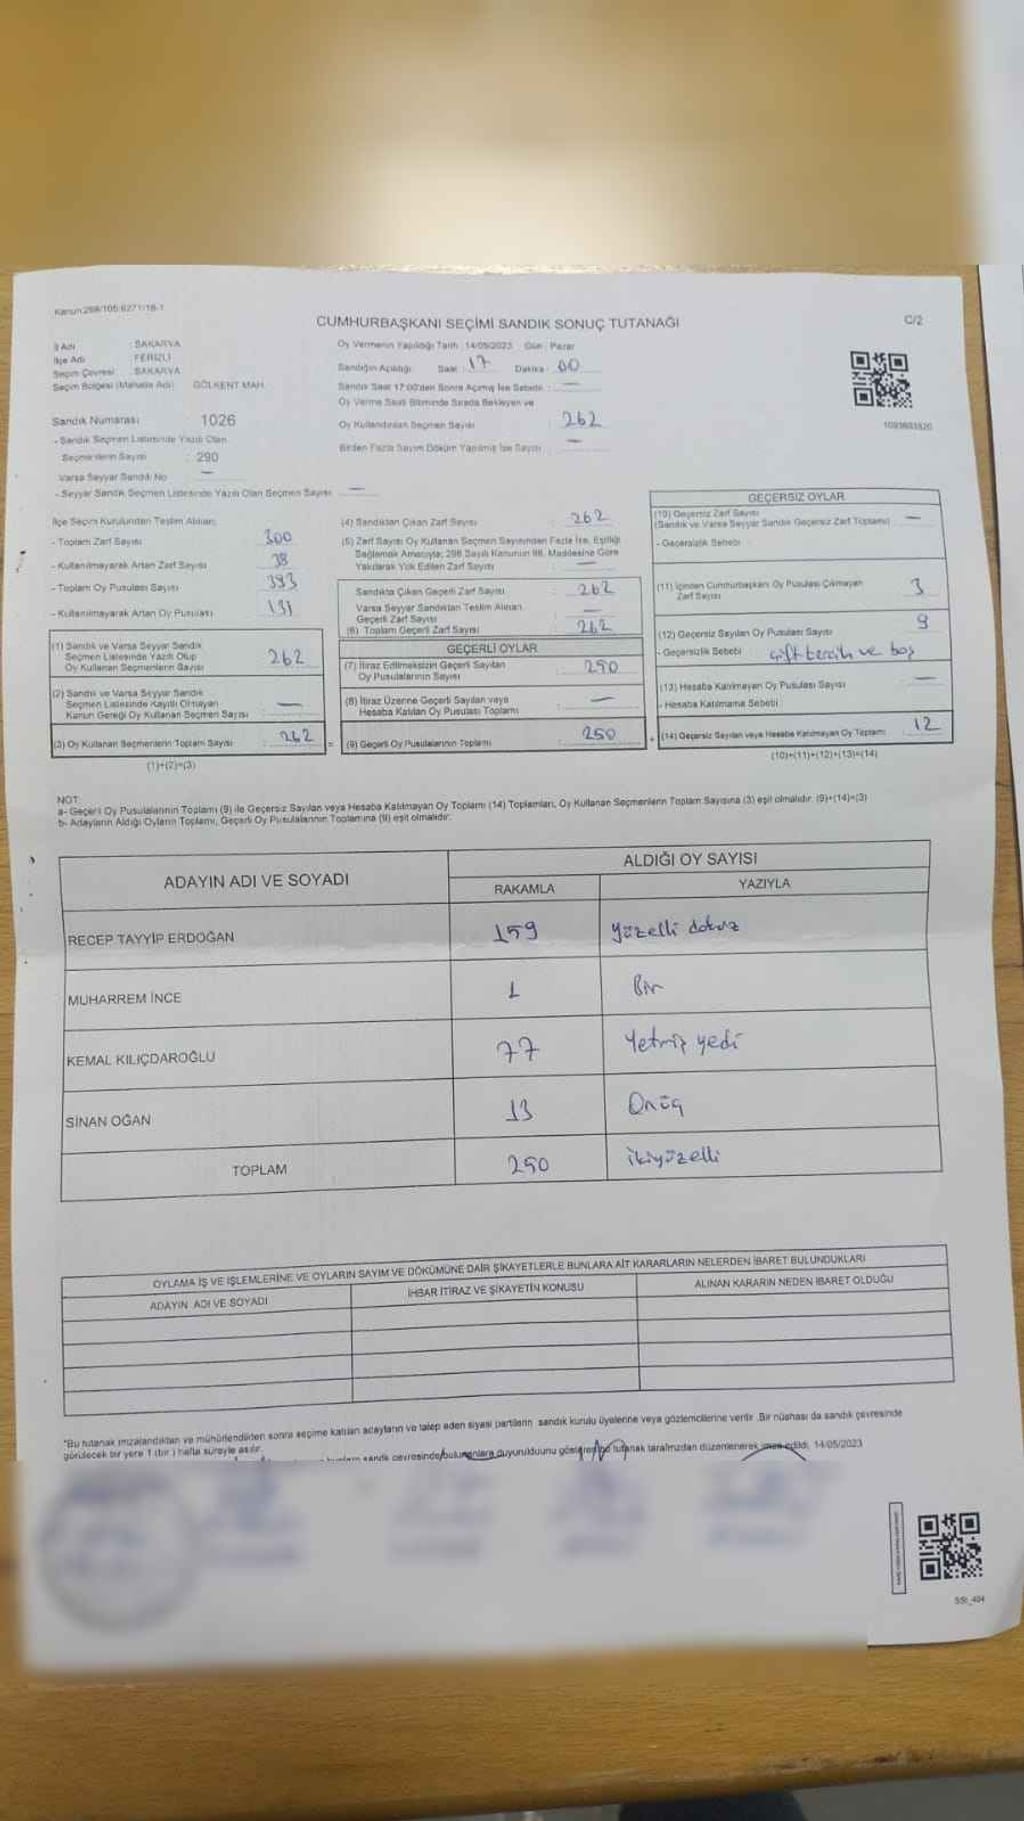 Kanun:298/105:6271/18-1
CUMHURBAŞKANI SEÇİMİ SANDIK SONUÇ TUTANAĞI
C/2
İl Adı : SAKARYA
İlçe Adı : FERİZLİ
Seçim Çevresi : SAKARYA
Seçim Bölgesi (Mahalle Adı) : GÖLKENT MAH.
Oy Vermenin Yapıldığı Tarih : 14/05/2023 Gün : Pazar
Sandığın Açıldığı Saat : 17 Dakika : 00
Sandık Saat 17:00'den Sonra Açılmış İse Sebebi : —
Oy Verme Saati Bitiminde Sırada Bekleyen ve
Oy Kullandırılan Seçmen Sayısı : 262
Birden Fazla Sayım Döküm Yapılmış İse Sayısı : —
1093603820
Sandık Numarası : 1026
- Sandık Seçmen Listesinde Yazılı Olan
Seçmenlerin Sayısı : 290
Varsa Seyyar Sandık No : —
- Seyyar Sandık Seçmen Listesinde Yazılı Olan Seçmen Sayısı : —
İlçe Seçim Kurulundan Teslim Alınan;
- Toplam Zarf Sayısı : 300
- Kullanılmayarak Artan Zarf Sayısı : 38
- Toplam Oy Pusulası Sayısı : 393
- Kullanılmayarak Artan Oy Pusulası : 131
(1) Sandık ve Varsa Seyyar Sandık
Seçmen Listesinde Yazılı Olup
Oy Kullanan Seçmenlerin Sayısı : 262
(2) Sandık ve Varsa Seyyar Sandık
Seçmen Listesinde Kayıtlı Olmayan
Kanun Gereği Oy Kullanan Seçmen Sayısı : —
(3) Oy Kullanan Seçmenlerin Toplam Sayısı : 262
(1)+(2)=(3)
(4) Sandıktan Çıkan Zarf Sayısı : 262
(5) Zarf Sayısı Oy Kullanan Seçmen Sayısından Fazla İse, Eşitliği
Sağlamak Amacıyla; 298 Sayılı Kanunun 98. Maddesine Göre
Yakılarak Yok Edilen Zarf Sayısı : —
Sandıkta Çıkan Geçerli Zarf Sayısı : 262
Varsa Seyyar Sandıktan Teslim Alınan
Geçerli Zarf Sayısı : —
(6) Toplam Geçerli Zarf Sayısı : 262
GEÇERLİ OYLAR
(7) İtiraz Edilmeksizin Geçerli Sayılan
Oy Pusulalarının Sayısı : 250
(8) İtiraz Üzerine Geçerli Sayılan veya
Hesaba Katılan Oy Pusulası Toplamı : —
= (9) Geçerli Oy Pusulalarının Toplamı : 250
GEÇERSİZ OYLAR
(10) Geçersiz Zarf Sayısı
(Sandık ve Varsa Seyyar Sandık Geçersiz Zarf Toplamı) : —
- Geçersizlik Sebebi :
(11) İçinden Cumhurbaşkanı Oy Pusulası Çıkmayan
Zarf Sayısı : 3
(12) Geçersiz Sayılan Oy Pusulası Sayısı : 9
- Geçersizlik Sebebi : çift tercih ve boş
(13) Hesaba Katılmayan Oy Pusulası Sayısı : —
- Hesaba Katılmama Sebebi :
+ (14) Geçersiz Sayılan veya Hesaba Katılmayan Oy Toplamı : 12
(10)+(11)+(12)+(13)=(14)
NOT:
a- Geçerli Oy Pusulalarının Toplamı (9) ile Geçersiz Sayılan veya Hesaba Katılmayan Oy Toplamı (14) Toplamları, Oy Kullanan Seçmenlerin Toplam Sayısına (3) eşit olmalıdır. (9)+(14)=(3)
b- Adayların Aldığı Oyların Toplamı, Geçerli Oy Pusulalarının Toplamına (9) eşit olmalıdır.
ADAYIN ADI VE SOYADI
ALDIĞI OY SAYISI
RAKAMLA YAZIYLA
RECEP TAYYİP ERDOĞAN 159 yüzelli dokuz
MUHARREM İNCE 1 Bir
KEMAL KILIÇDAROĞLU 77 Yetmiş yedi
SİNAN OĞAN 13 Onüç
TOPLAM 250 ikiyüzelli
OYLAMA İŞ VE İŞLEMLERİNE VE OYLARIN SAYIM VE DÖKÜMÜNE DAİR ŞİKAYETLERLE BUNLARA AİT KARARLARIN NELERDEN İBARET BULUNDUKLARI
ADAYIN ADI VE SOYADI İHBAR İTİRAZ VE ŞİKAYETİN KONUSU ALINAN KARARIN NEDEN İBARET OLDUĞU
*Bu tutanak imzalandıktan ve mühürlendikten sonra seçime katılan adayların ve talep eden siyasi partilerin sandık kurulu üyelerine veya gözlemcilerine verilir. Bir nüshası da sandık çevresinde
görülecek bir yere 1 (bir) hafta süreyle asılır.
sandık çevresinde bulunanlara duyurulduunu gösteren bu tutanak tarafımızdan düzenlenerek imza edildi. 14/05/2023
SSt_404